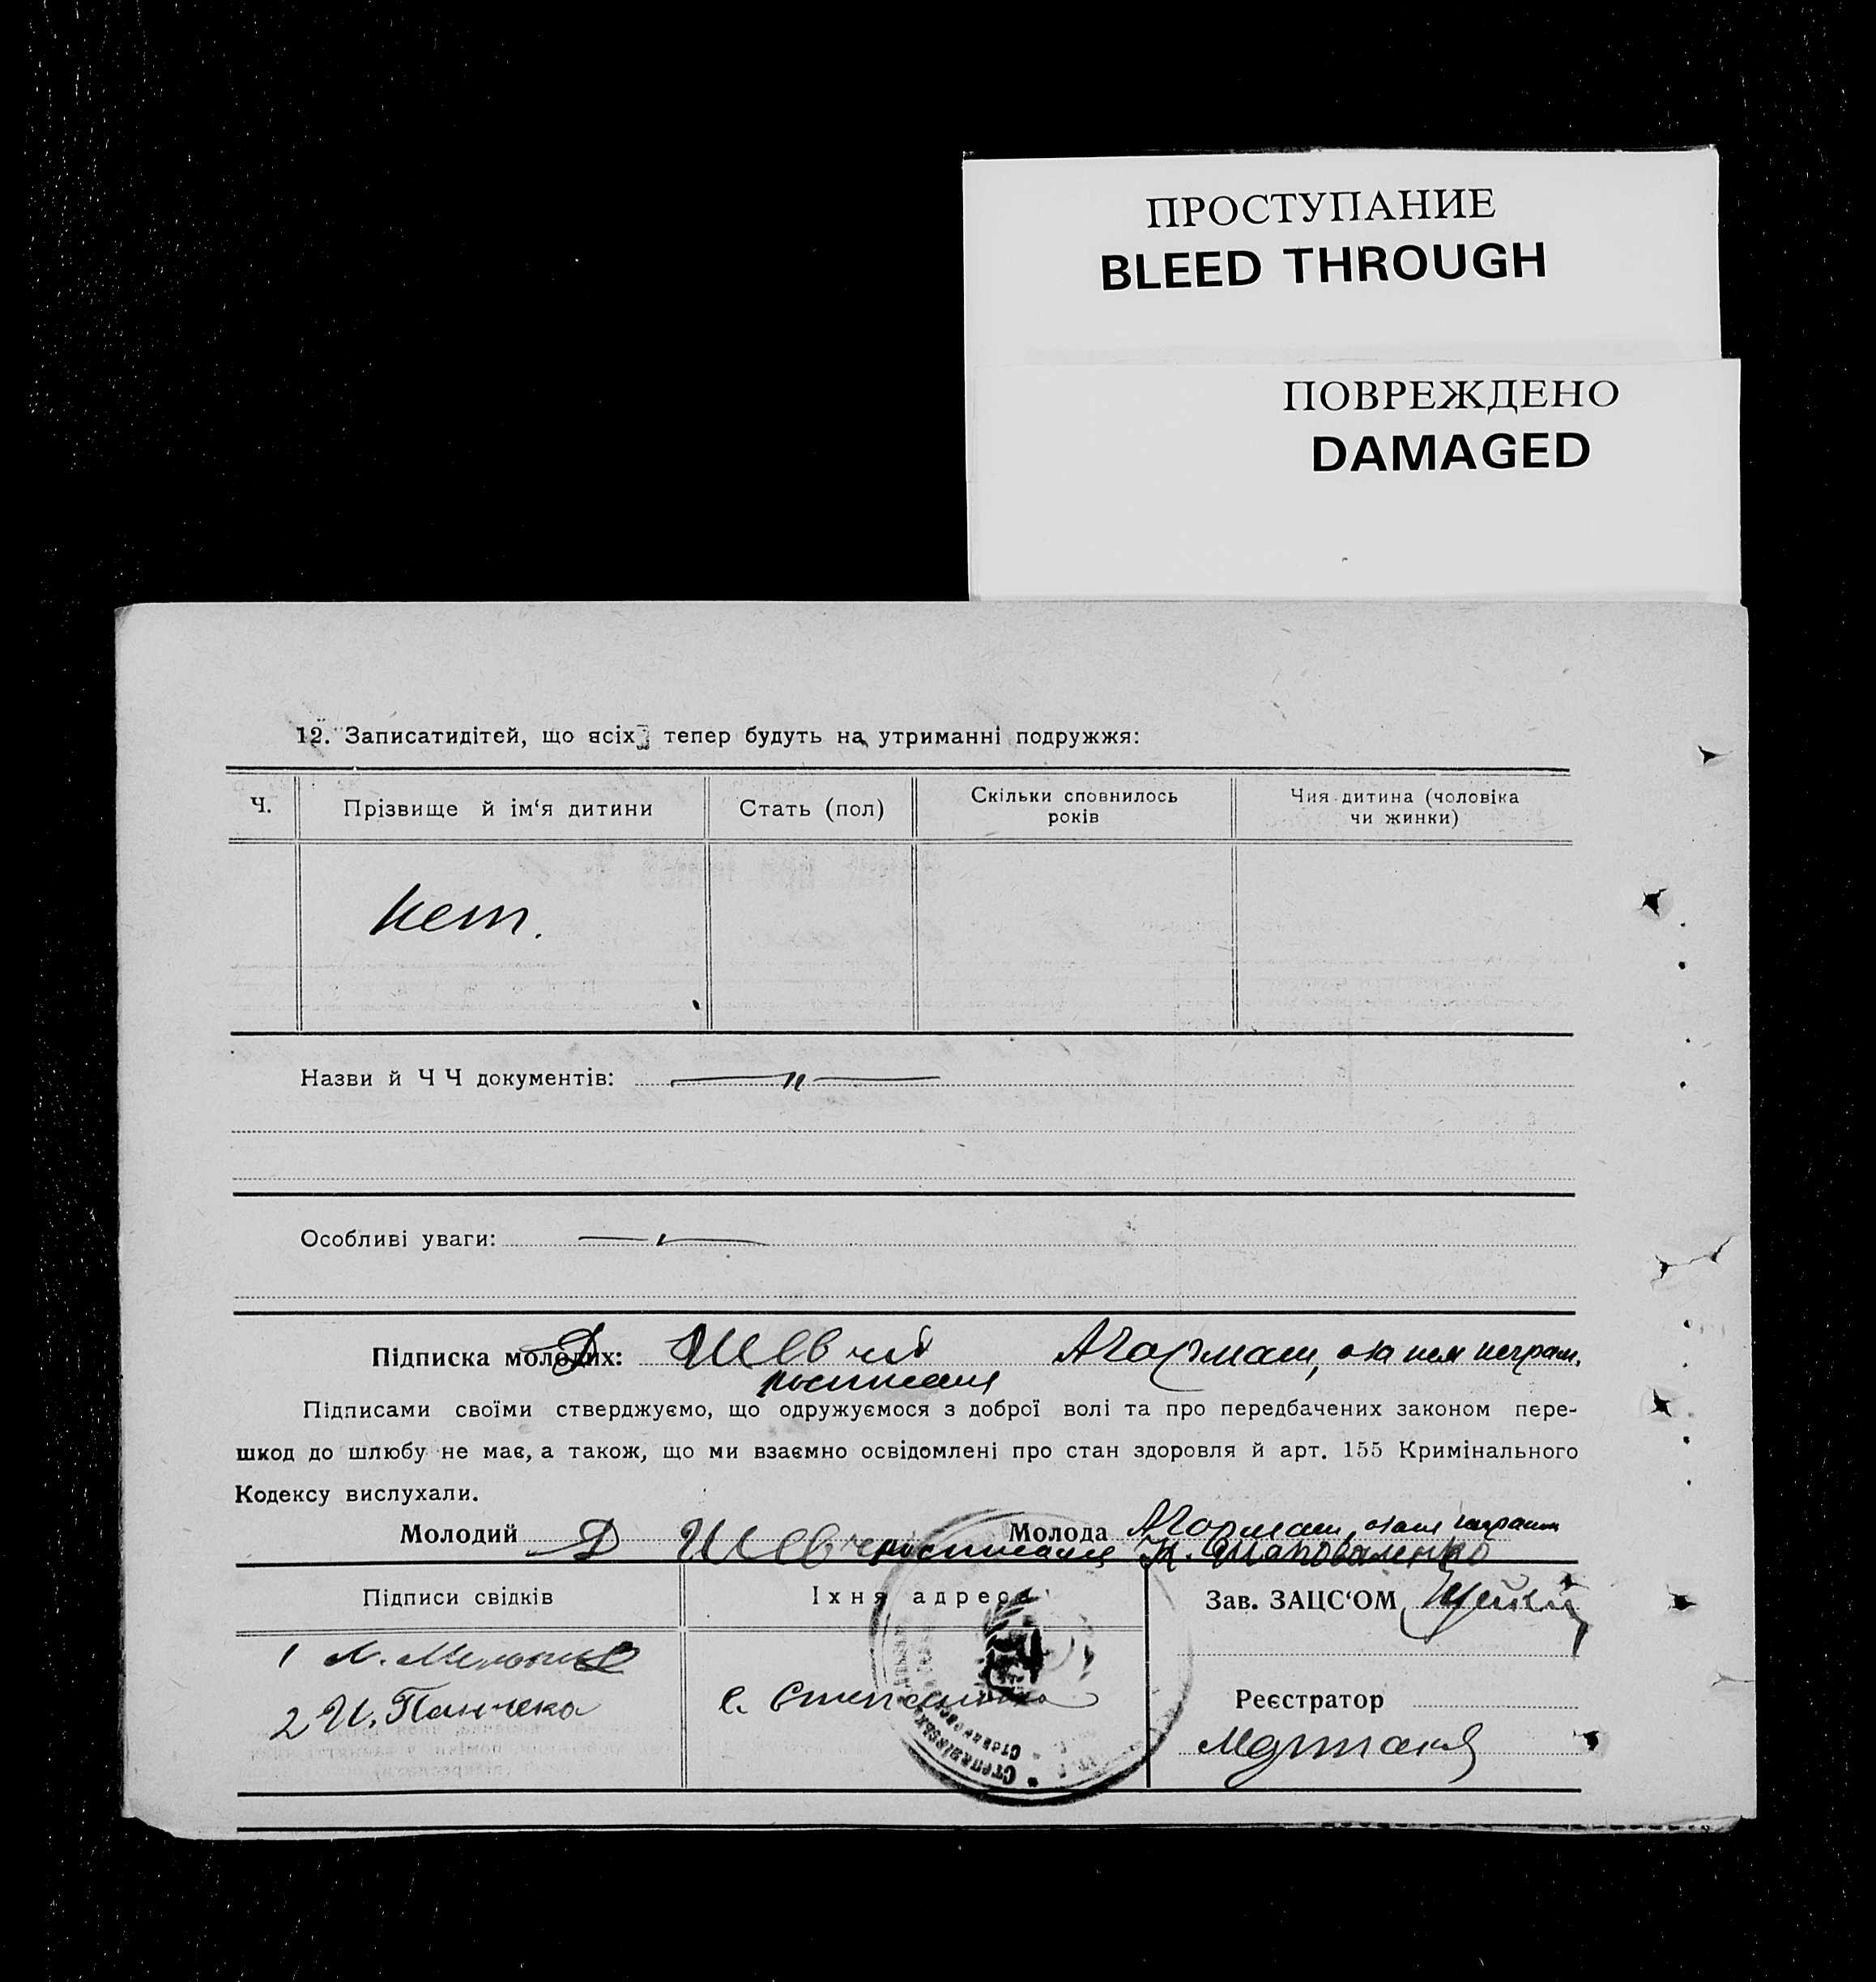 ПРОСТУПАНИЕ
BLEED THROUGH
ПОВРЕЖДЕНО
DAMAGED
12. Записатидітей, що всіх тепер будуть на утриманні подружжя:
Ч.
Прізвище й ім‘я дитини
Стать (пол)
Скільки сповнилось
років
Чия дитина (чоловіка
чи жинки)
нет.
Назви й Ч Ч документів: — " —
Особливі уваги: — " —
Підписка молодих: Д
Підписами своїми стверджуємо, що одружуємося з доброї волі та про передбачених законом пере-
шкод до шлюбу не має, а також, що ми взаємно освідомлені про стан здоровля й арт. 155 Кримінального
Кодексу вислухали.
Молодий Д Молода
Шаповаленко
Підписи свідків
Їхня адреса
Зав. ЗАЦС‘ОМ
1
2 И. Панчека
с. Степановка
Реєстратор